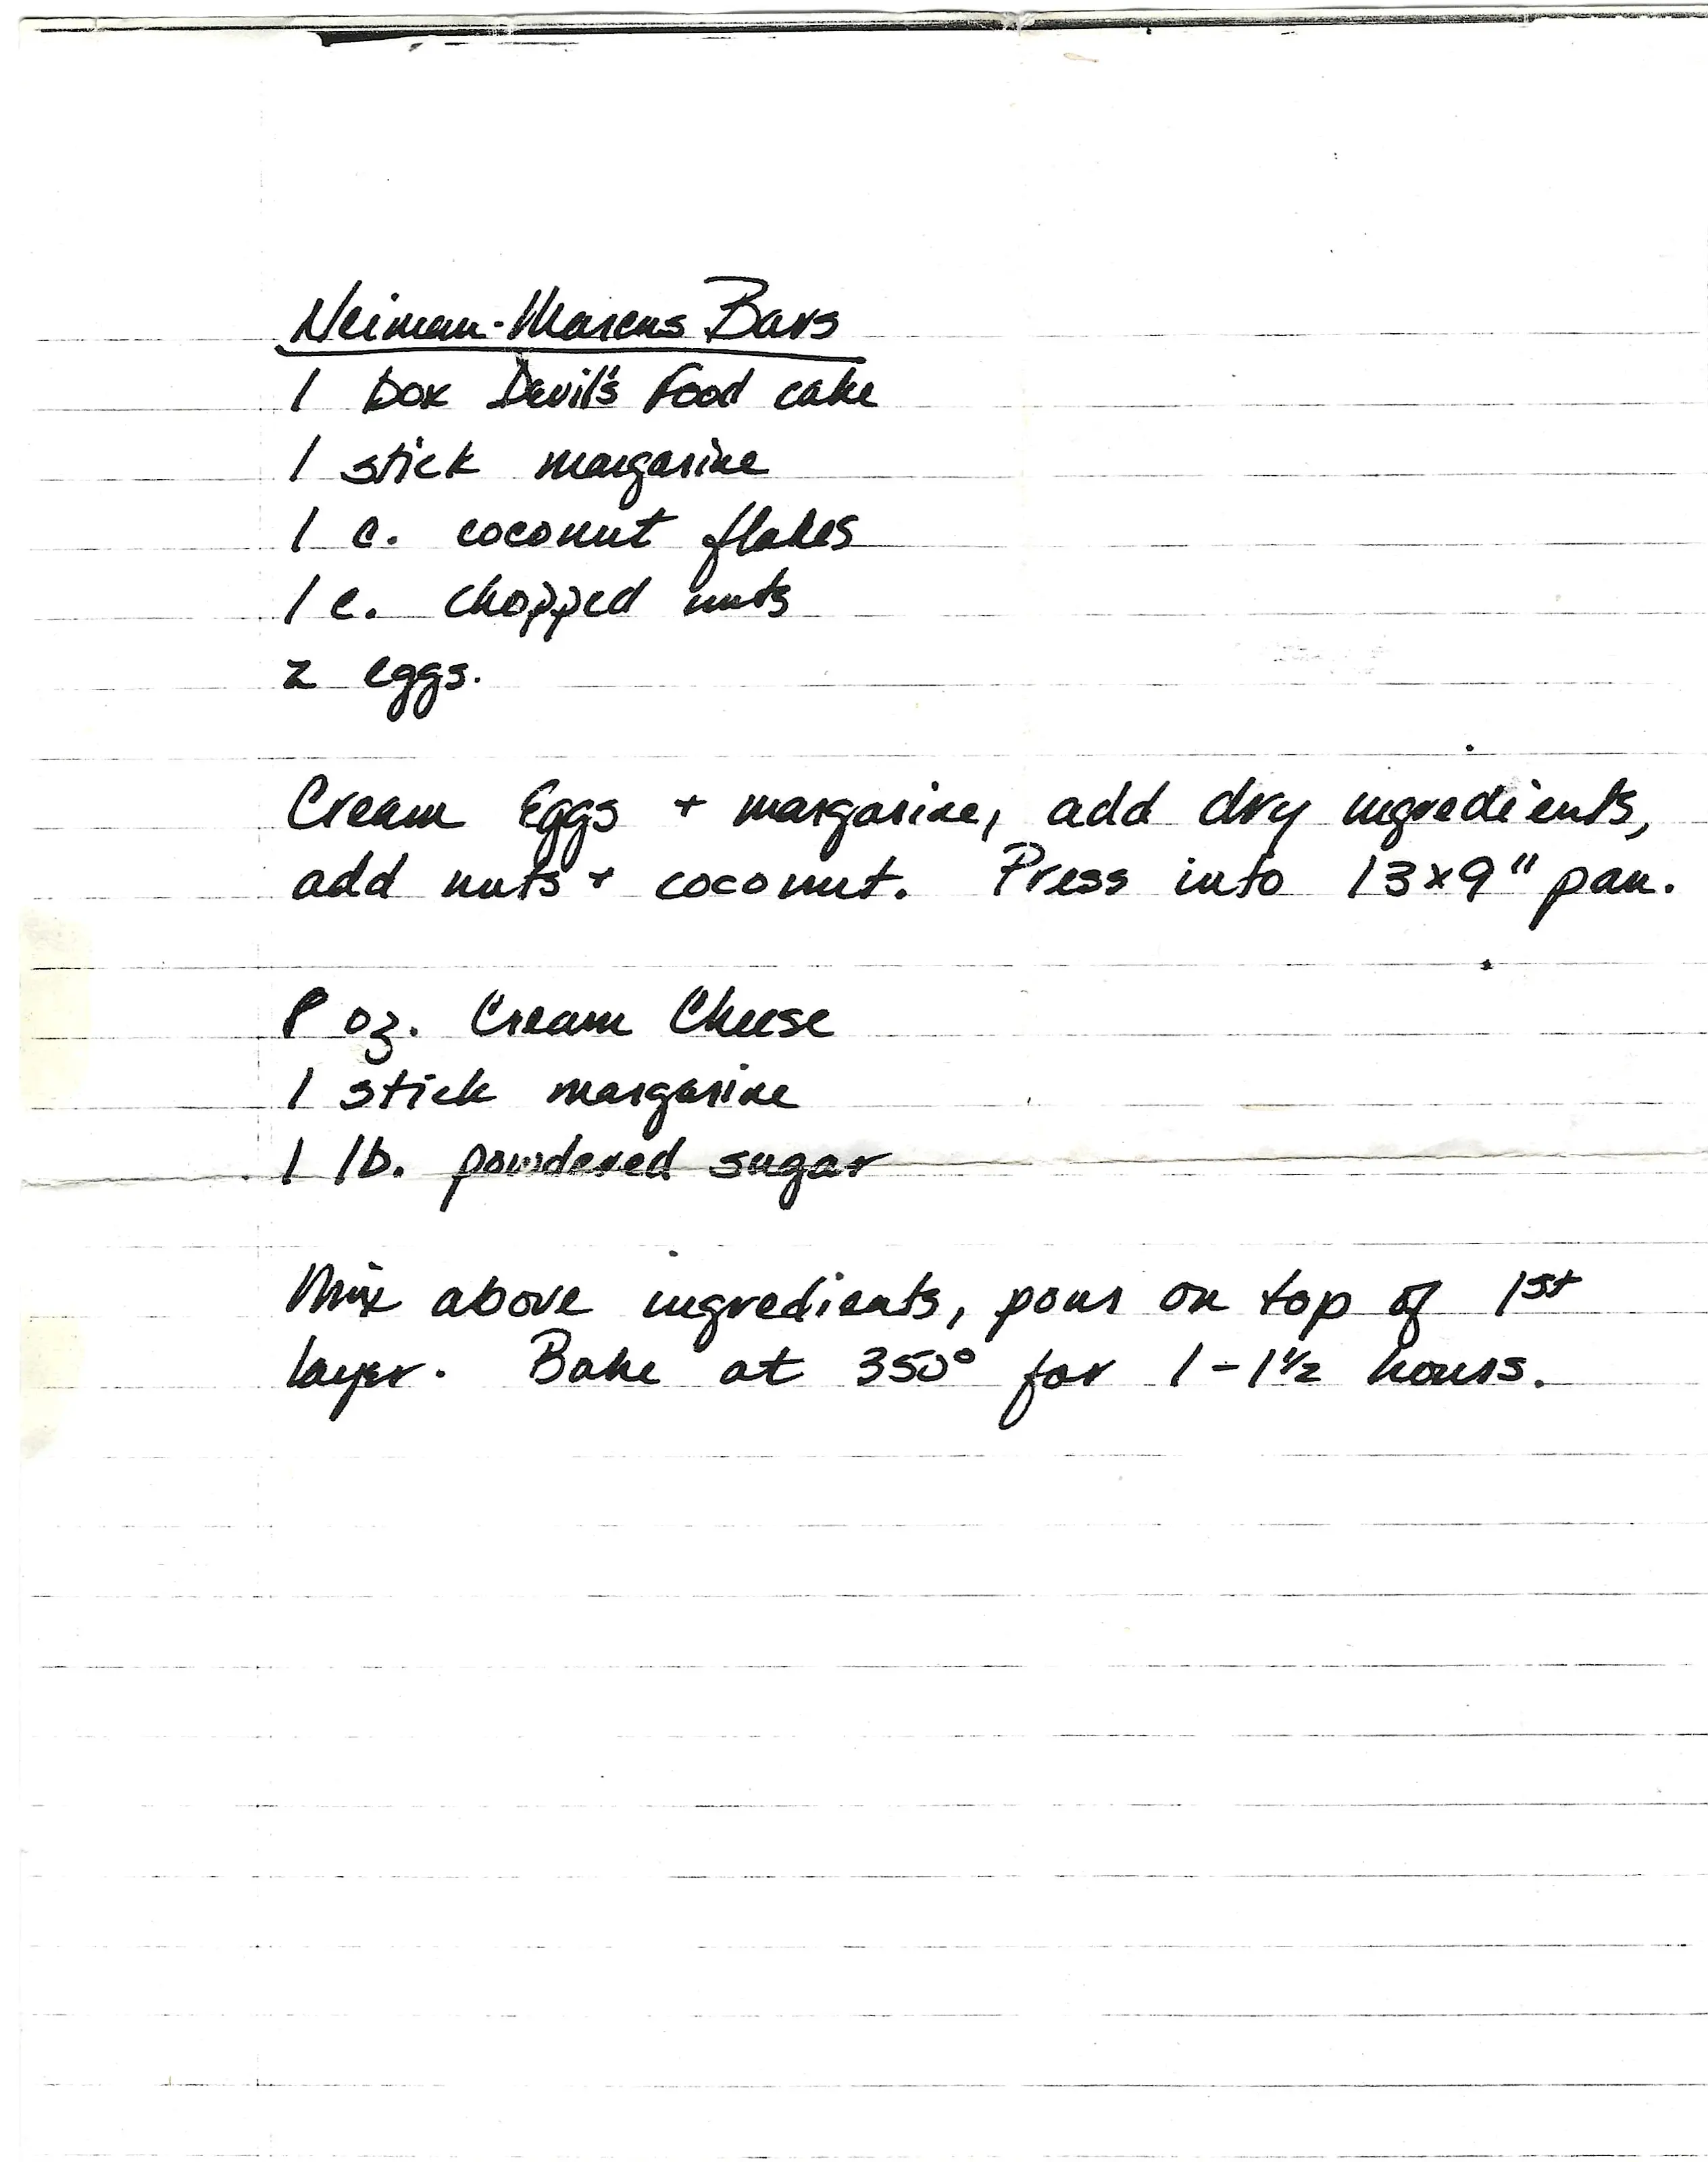 Neiman-Marcus Bars
1 box Devil's Food cake
1 stick margarine
1 c. coconut flakes
1 c. chopped nuts
2 eggs.
Cream Eggs + margarine, add dry ingredients,
add nuts + coconut. Press into 13x9" pan.
8 oz. Cream Cheese
1 stick margarine
1 lb. powdered sugar
Mix above ingredients, pour on top of 1st
layer. Bake at 350° for 1-1½ hours.